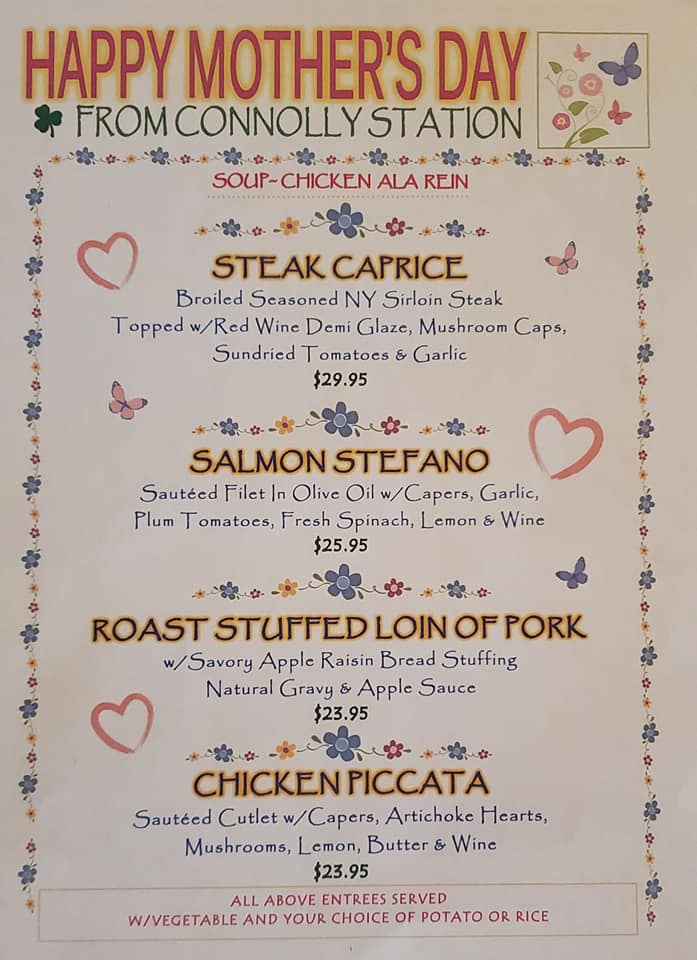 HAPPY MOTHER'S DAY
FROM CONNOLLY STATION
SOUP~CHICKEN ALA REIN
STEAK CAPRICE
Broiled Seasoned NY Sirloin Steak
Topped w/Red Wine Demi Glaze, Mushroom Caps,
Sundried Tomatoes & Garlic
$29.95
SALMON STEFANO
Sautéed Filet In Olive Oil w/Capers, Garlic,
Plum Tomatoes, Fresh Spinach, Lemon & Wine
$25.95
ROAST STUFFED LOIN OF PORK
w/Savory Apple Raisin Bread Stuffing
Natural Gravy & Apple Sauce
$23.95
CHICKEN PICCATA
Sautéed Cutlet w/Capers, Artichoke Hearts,
Mushrooms, Lemon, Butter & Wine
$23.95
ALL ABOVE ENTREES SERVED
W/VEGETABLE AND YOUR CHOICE OF POTATO OR RICE